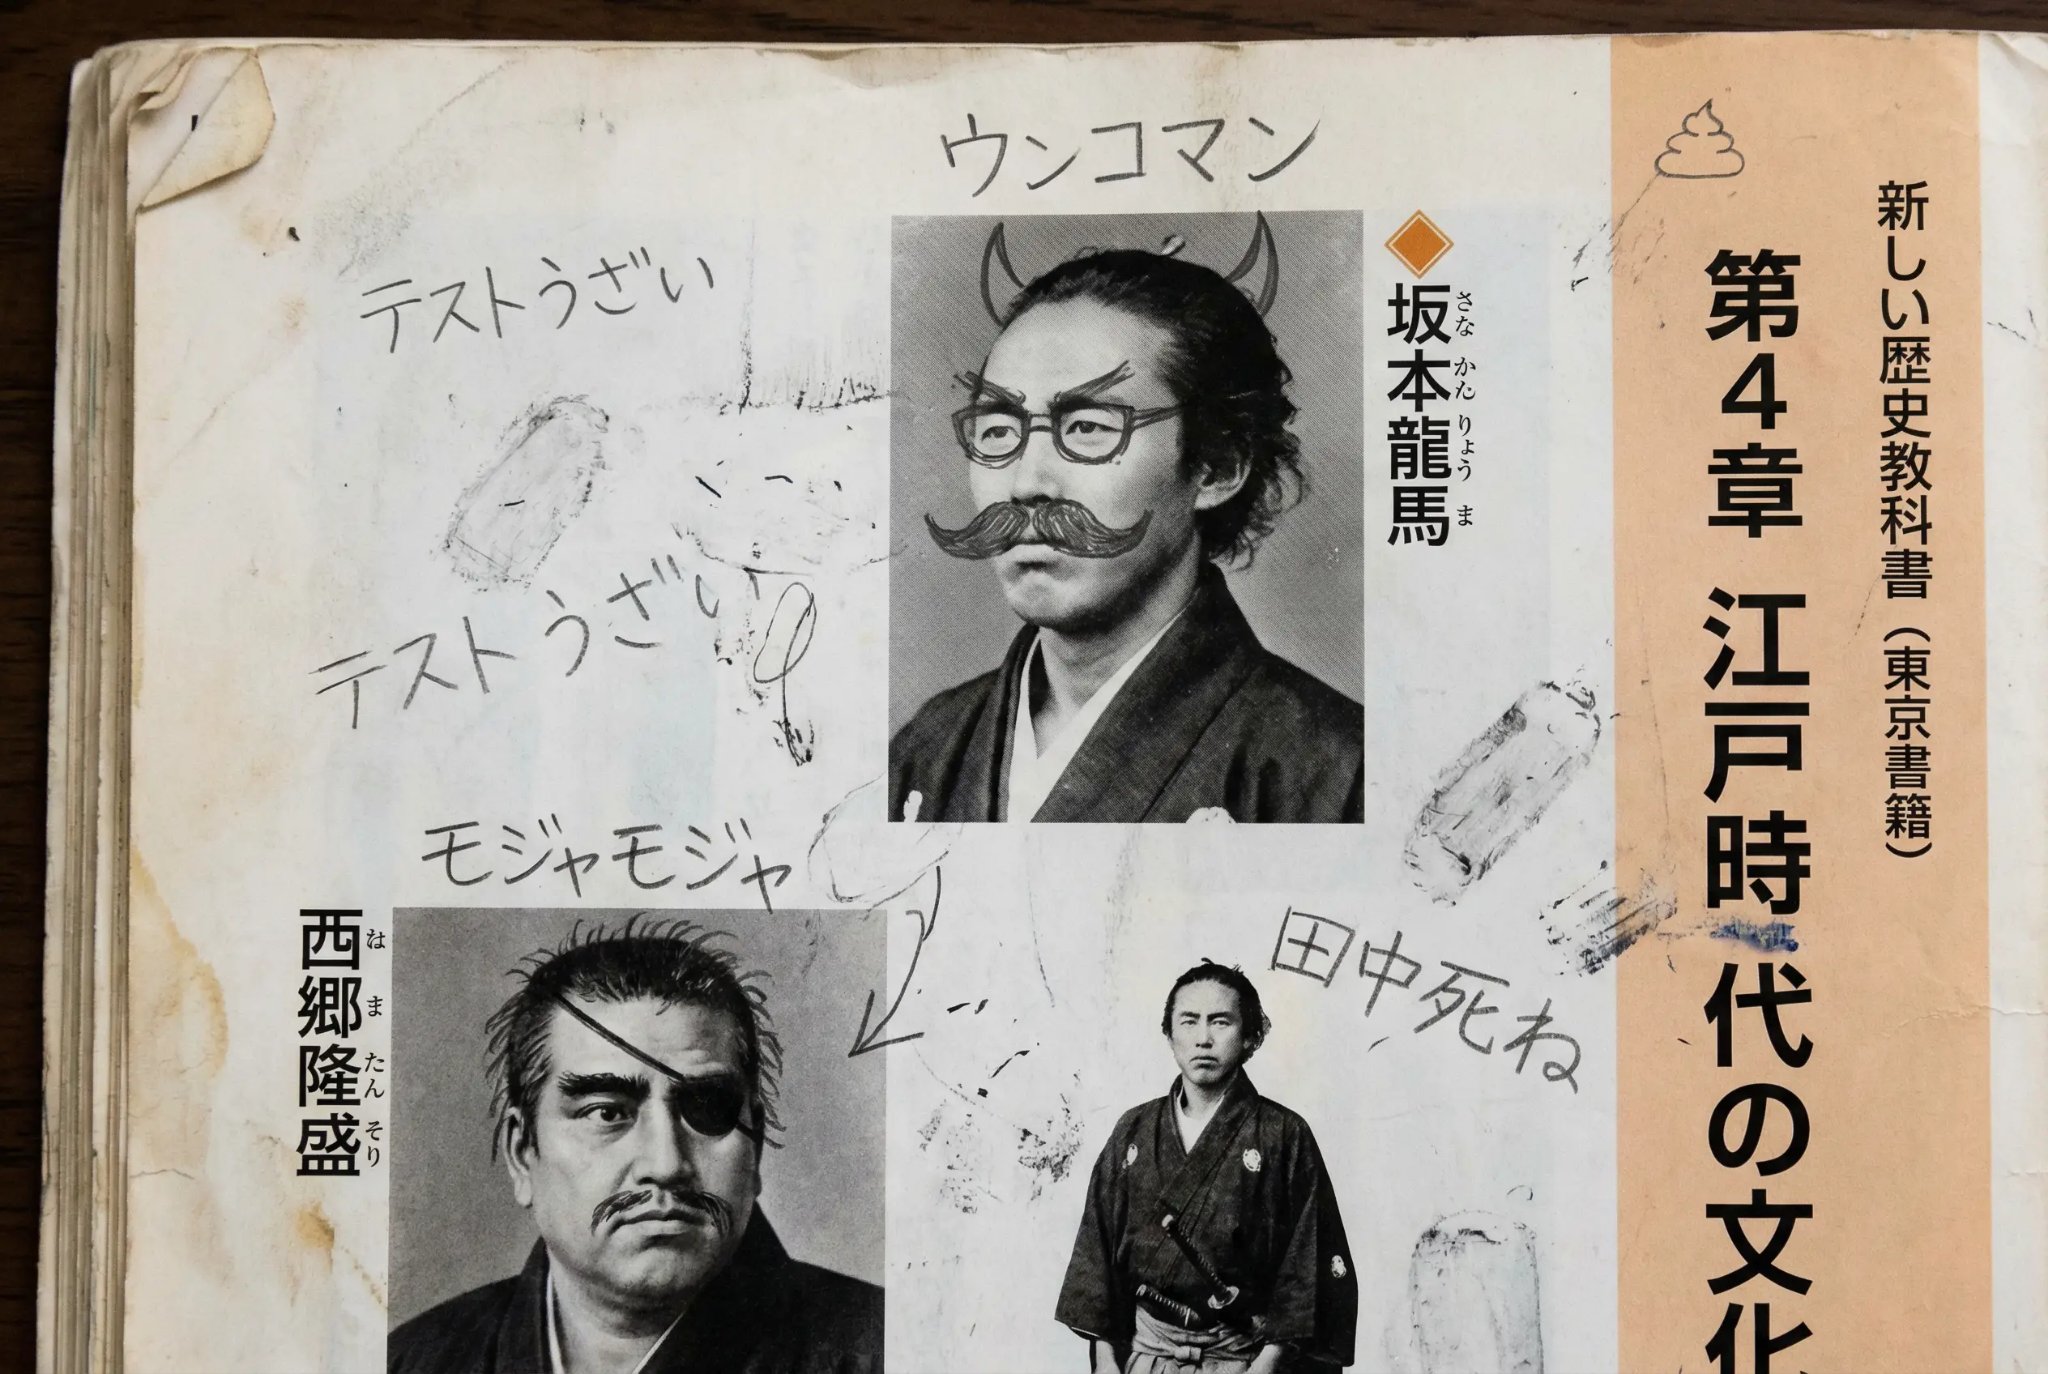 新しい歴史教科書（東京書籍）
第4章 江戸時代の文化
ウンコマン
坂本龍馬
さな かたりょう ま
テストうざい
テストうざい
モジャモジャ
田中死ね
西郷隆盛
な ま たん そり